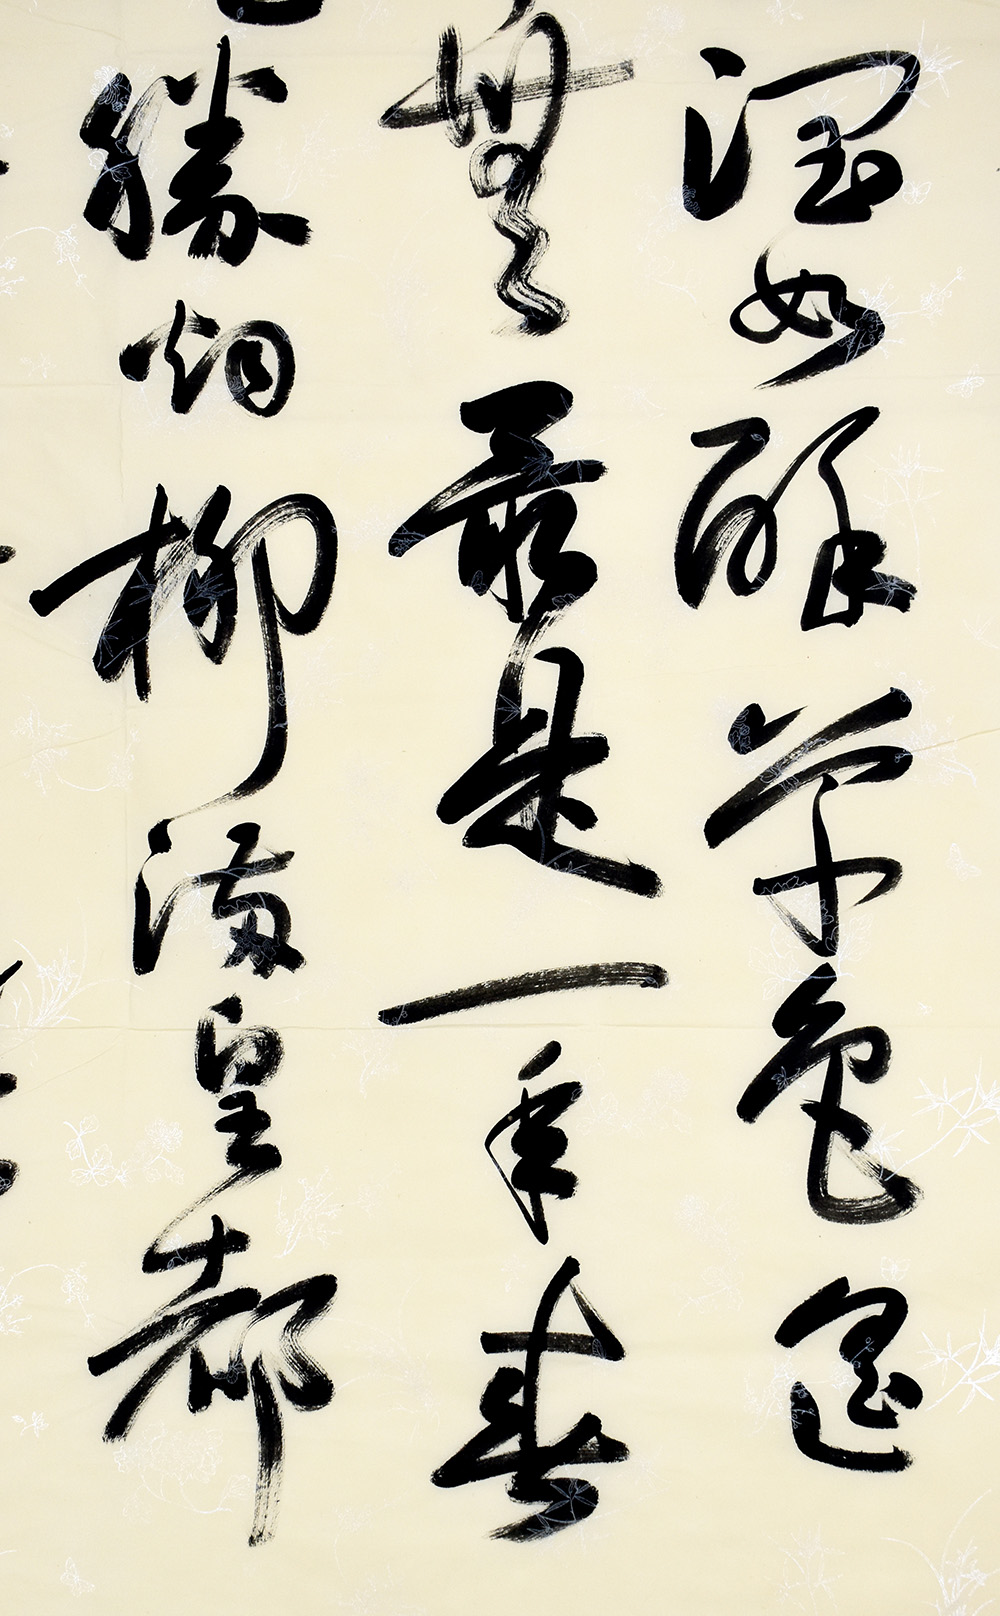 润如酥草色遥
無最是一年春
勝烟柳满皇都